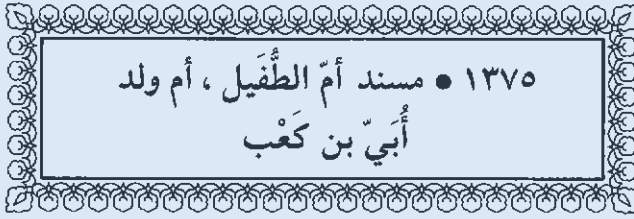 ١٣٧٥ ● مسند أمّ الطُّفَيل ، أم ولد
أُبَيّ بن كَعْب